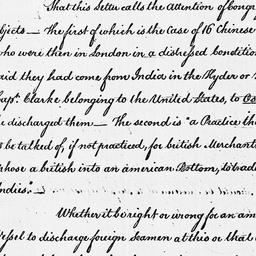 That this Letter calls the attention of Congr
bjects — The first of which is the Case of 16 Chinese
who were then in London in a distressed Condition
aid they had come from India in the Ryder or
Capt. Clarke belonging to the United States, to
he discharged them — The second is "a Practice th
be talked of, if not practiced, for british Merchant
whose a british into an american Bottom, to trade
Indies".
Whether it be right or wrong for an am
Vessel to discharge foreign Seamen at this or that